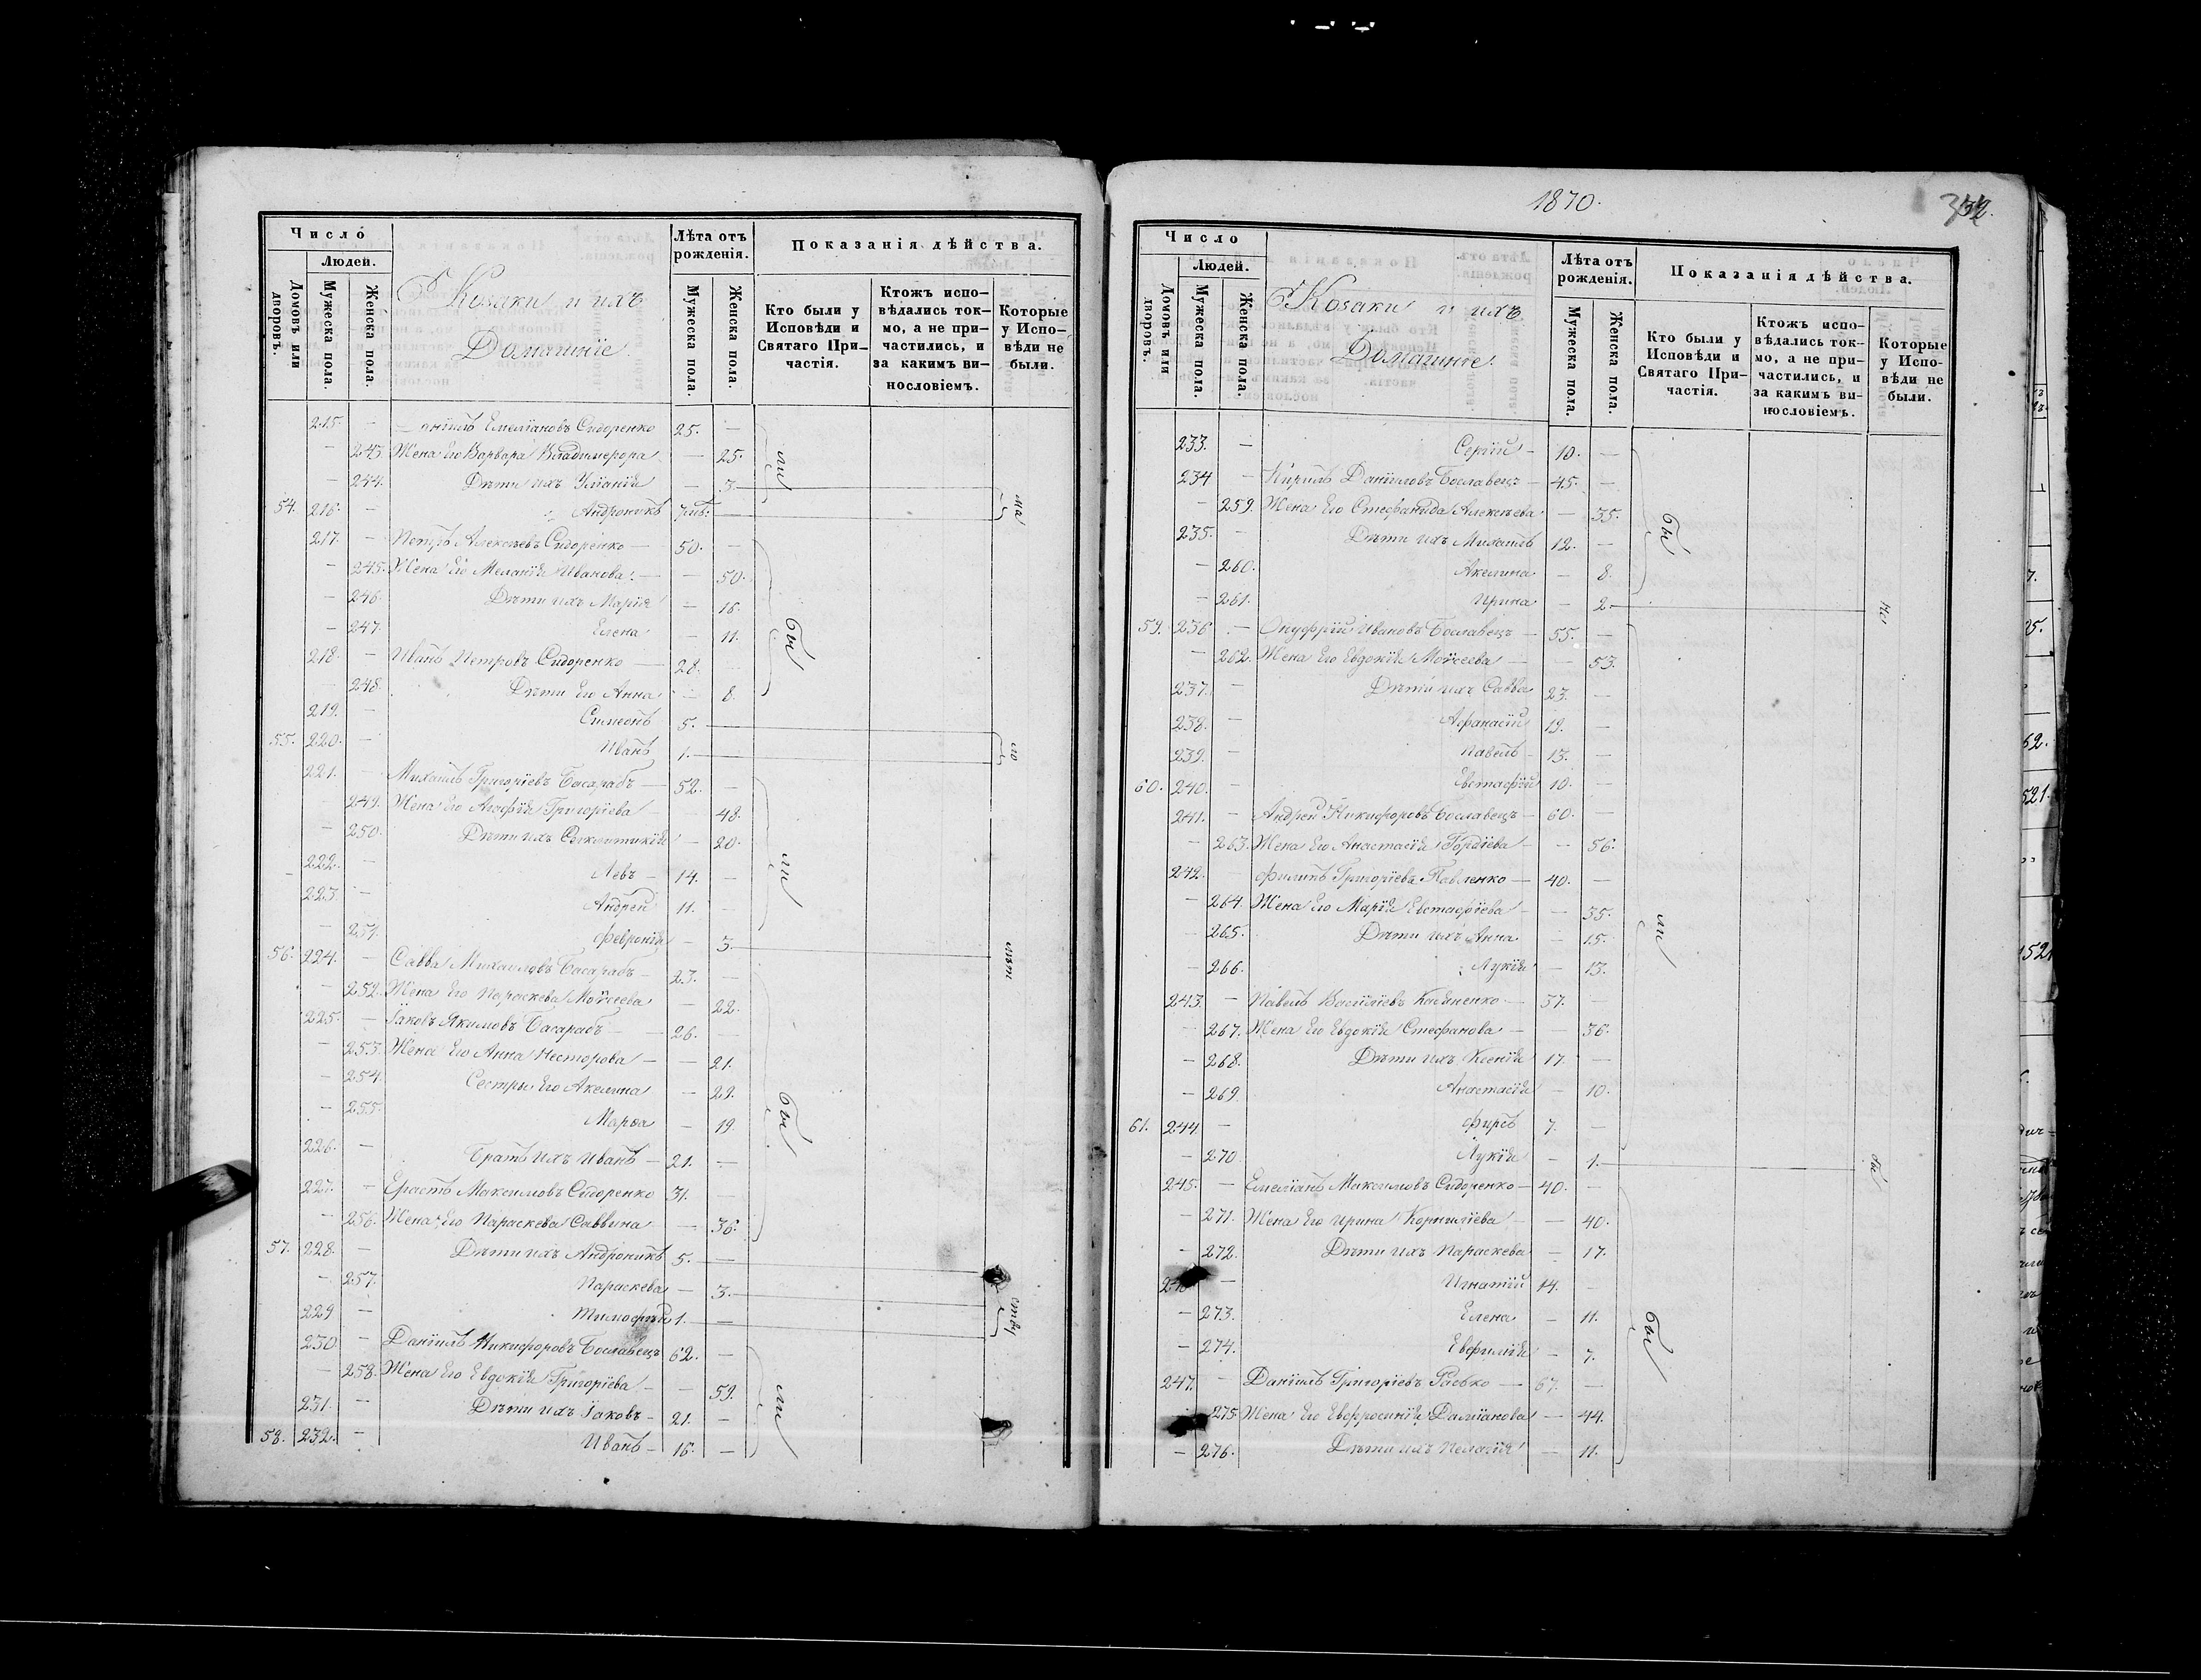 1870.
32.
Число
Людей.
Домовъ или дворовъ.
Мужеска пола.
Женска пола.
Козаки и ихъ
Домашніе.
Лѣта отъ рожденія.
Мужеска пола.
Женска пола.
Показанія дѣйства.
Кто были у Исповѣди и Святаго Причастія.
Ктожъ исповѣдались токмо, а не причастились, и за какимъ винословіемъ.
Которые у Исповѣди не были.
215. — Емеліановъ Сидоренко 25. —
— 243. Жена Его Варвара — 25.
— 244. Дѣти ихъ — 3.
54. 216. — Андроникъ —
217. — Петръ Алексѣевъ Сидоренко — 50. —
— 245. Жена Его Меланія Иванова — 50.
— 246. Дѣти ихъ Марія — 16.
— 247. Елена — 11.
218. — Иванъ Петровъ Сидоренко — 28. —
— 248. Дѣти Его Анна — 8.
219. — Симеонъ 5. —
55. 220. — Иванъ 1. —
221. — Михаилъ Григоріевъ Басарабъ — 52. —
— 249. Жена Его Агафія Григоріева — 48.
— 250. Дѣти ихъ — 20.
222. — Левъ — 14. —
223. — Андрей 11. —
— 251. Февронія — 3.
56. 224. — Савва Михаиловъ Басарабъ — 23. —
— 252. Жена Его Параскева Моѵсеева — 22.
225. — Іаковъ Якимовъ Басарабъ — 26. —
— 253. Жена Его Анна Несторова — 21.
— 254. Сестры Его Акелина — 22.
— 255. Марѳа — 19.
226. — Братъ ихъ Иванъ — 21. —
227. — Ерастъ Максимовъ Сидоренко 31.
— 256. Жена Его Параскева Саввина — 36.
57. 228. — Дѣти ихъ Андроникъ 5. —
— 257. Параскева — 3.
229 — Тимофѣй 1. —
230. — Даніилъ Никифоровъ Бославецъ 62. —
— 258. Жена Его Евдокія Григоріева — 59.
231. — Дѣти ихъ Іаковъ — 21. —
58. 232. — Иванъ — 16. —
Число
Людей.
Домовъ или дворовъ.
Мужеска пола.
Женска пола.
Козаки и ихъ
Домашніе.
Лѣта отъ рожденія.
Мужеска пола.
Женска пола.
Показанія дѣйства.
Кто были у Исповѣди и Святаго Причастія.
Ктожъ исповѣдались токмо, а не причастились, и за какимъ винословіемъ.
Которые у Исповѣди не были.
233. — Сергій — 10. —
234 — Кирилъ Даніиловъ Бославецъ — 45. —
— 259. Жена Его Стефанида Алексѣева — 35.
235. — Дѣти ихъ Михаилъ 12. —
— 260. Акелина — 8.
— 261. Ирина — 2.
59. 236 — Онуфрій Ивановъ Бославецъ — 55. —
— 262. Жена Его Евдокія Моѵсеева — 53.
237. — Дѣти ихъ Савва 23. —
238. — Афанасій 19. —
239. — Павелъ — 13. —
60. 240. — Евстафій 10. —
241. — Андрей Никифоровъ Бославецъ — 60. —
— 263. Жена Его Анастасія Гордіева — 56.
242. — Филипъ Григоріева Павленко — 40. —
— 264. Жена Его Марія Евстафіева — 35.
— 265. Дѣти ихъ Анна — 15.
— 266. Лукія — 13.
243. — Павелъ Василіевъ — 37. —
— 267. Жена Его Евдокія Стефанова — 36.
— 268. Дѣти ихъ Ксенія 17. —
— 269. Анастасія — 10.
61. 244. — Фирсъ 7. —
— 270 Лукія — 1.
245. — Емеліанъ Максимовъ Сидоренко — 40. —
— 271. Жена Его Ирина Корниліева — 40.
— 272. Дѣти ихъ Параскева — 17.
— Игнатій 14. —
— 273. Елена — 11.
— 274. — 7.
247. — Даніилъ Григоріевъ — 67. —
275. Жена Его Евфросинія — 44.
— 276. Дѣти ихъ Пелагія — 11.